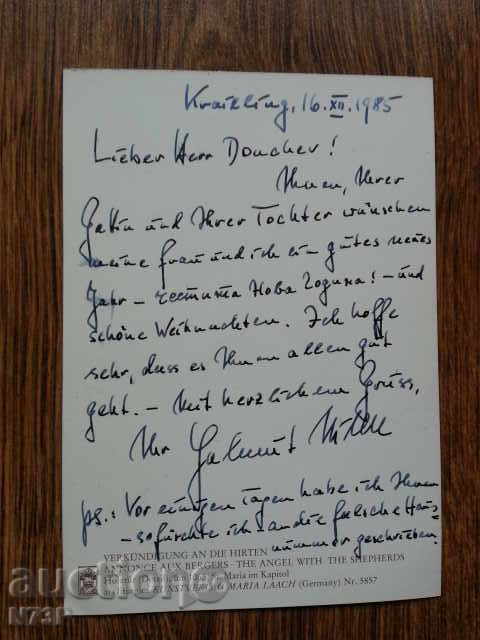 Krailling, 16.XII.1985
Lieber Herr Douchev!
Ihnen, Ihrer
Gattin und Ihrer Tochter wünschen
meine Frau und ich ein gutes neues
Jahr – честита Нова Година! – und
schöne Weihnachten. Ich hoffe
sehr, dass es Ihnen allen gut
geht. – Mit herzlichem Gruss,
Ihr
ps.: Vor einigen Tagen habe ich Ihnen
– so fürchte ich – an die falsche Haus=
nummer geschrieben.
VERKÜNDIGUNG AN DIE HIRTEN
ANNONCE AUX BERGERS · THE ANGEL WITH THE SHEPHERDS
Maria im Kapitol
MARIA LAACH (Germany) Nr. 5857
auction.bg
N73P